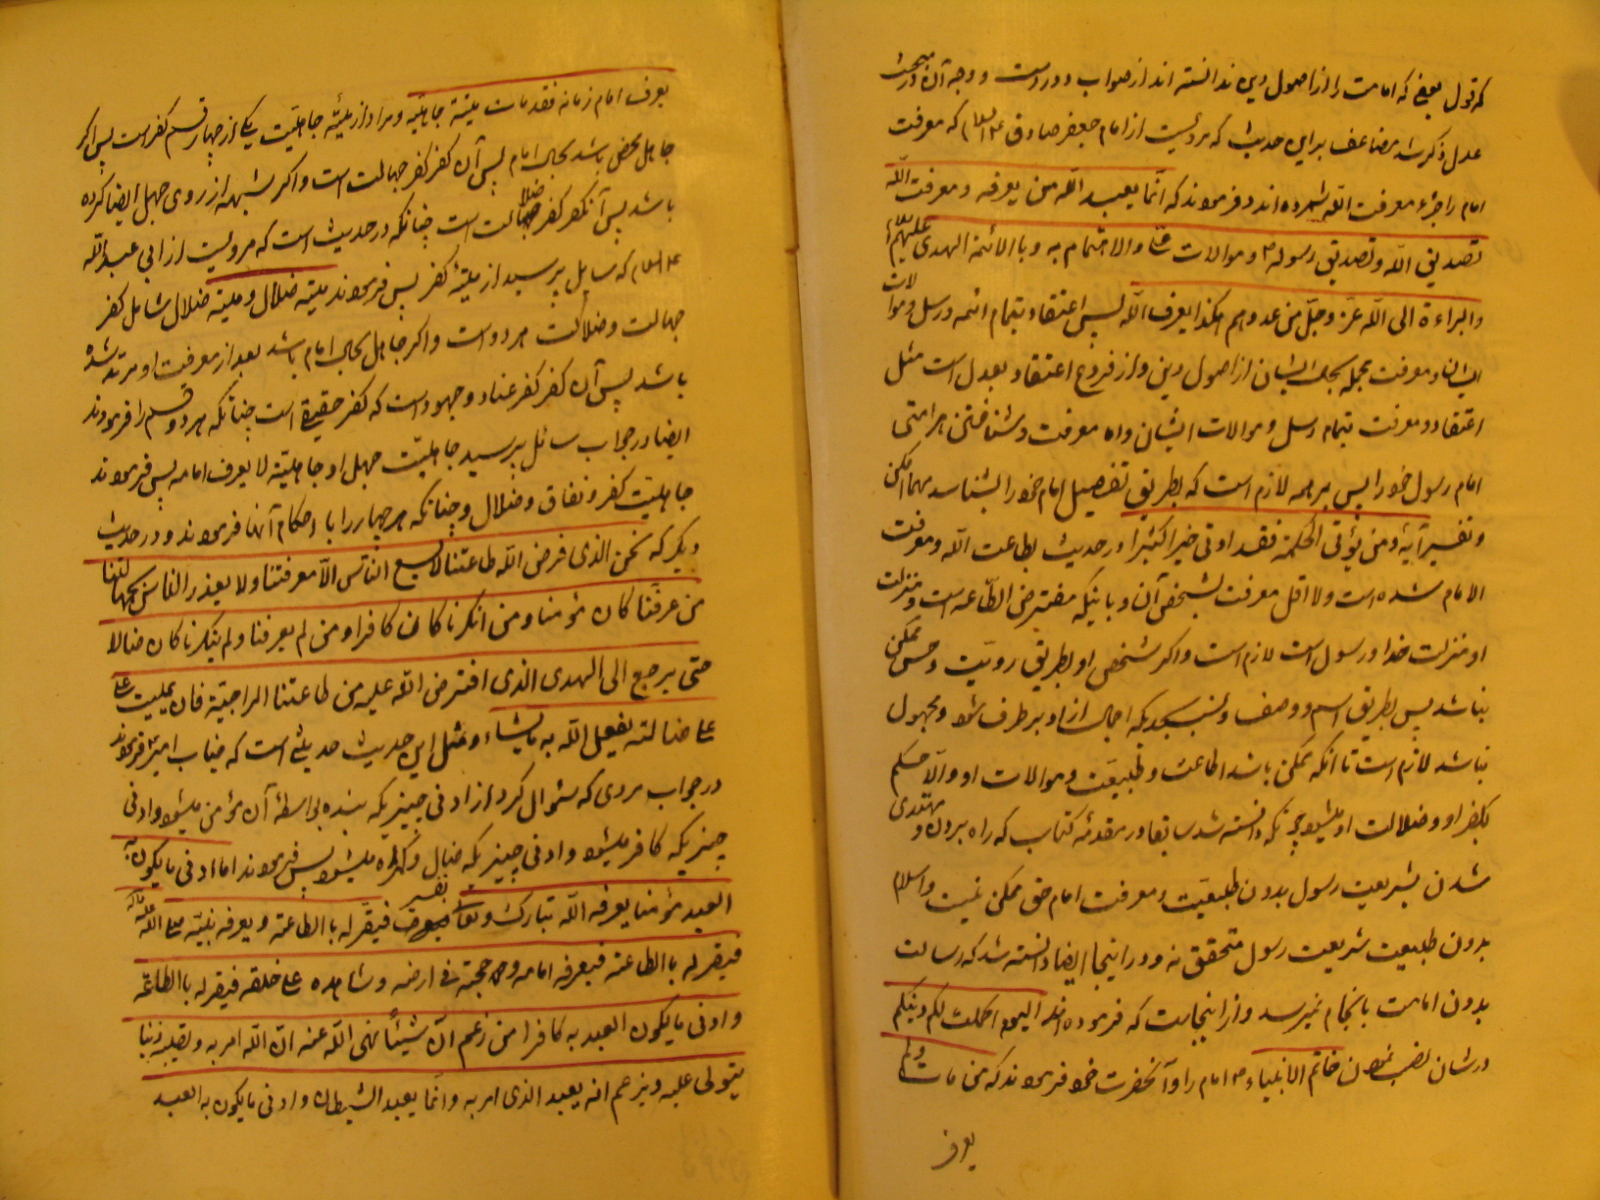 که قول بعضی که امامت را از اصول دین ندانسته اند از صواب دور است و وجه آن در مبحث
عدل ذکر شد مضاعف براین حدیث که مرویست از امام جعفر صادق علیه السلام که معرفت
امام را جزء معرفت الله شمرده اند و فرمودند که انّما یعبد الله من یعرفه و معرفت الله
تصدیق الله و تصدیق رسوله و موالات علی والایتمام به و با الائمة الهدی علیهم السلام
والبراءة الی الله عزّ وجلّ من عدوهم هکذا یعرف الله پس اعتقاد بتمام ائمه و رسل و موالات
ایشان و معرفت مجمله بحال ایشان از اصول دین و از فروع اعتقاد بعدل است مثل
اعتقاد و معرفت بتمام رسل و موالات ایشان واما معرفت و شناختن هر امتی
امام رسول خود را پس بر همه لازم است که بطریق تفصیل امام خود را بشناسد مهما امکن
و تفسیر آیه و من یؤتی الحکمة فقد اوتی خیرا کثیرا در حدیث بطاعت الله و معرفت
الامام شده است و لا اقل معرفت بشخص آن و باینکه مفترض الطّاعه است و منزلت
او منزلت خدا و رسول است لازم است و اگر شخص او بطریق رویّت و حس ممکن
نباشد پس بطریق اسم و وصف و نسب بحدیکه اجمال از او بر طرف شود و مجهول
نباشد لازم است تا آنکه ممکن باشد اطاعت و طبیعت و موالات او والّا حکم
بکفر او و ضلالت او میشود چنانکه دانسته شد سابقا در مقدمهٔ کتاب که راه بردن و مهتدی
شدن بشریعت رسول بدون طبیعت و معرفت امام حق ممکن نیست و اسلام
بدون طبیعت شریعت رسول متحقق نه و در اینجا ایضا دانسته شد که رسالت
بدون امامت بانجام نمیرسد و از اینجاست که فرموده اند الیوم اکملت لکم دینکم
در شان نصب نمودن خاتم الانبیاء ص امام را و آنحضرت خود فرمودند که من مات و لم
یعرف
یعرف امام زمانه فقد مات میتة جاهلیّه و مراد از میتهٔ جاهلیّت یکی از چهار قسم کفر است پس اگر
جاهل محض باشد بحال امام پس آن کفر کفر جهالت است و اگر شبهه از روی جهل ایضا کرده
باشد پس آن کفر کفر ضلالت است چنانکه در حدیث است که مرویست از ابی عبدالله
علیه السلام که سایل پرسید از میتهٔ کفر پس فرمودند میته ضلال و میته ضلال شامل کفر
جهالت و ضلالت هر دو است و اگر جاهل بحال امام باشد بعد از معرفت او مرتد شده
باشد پس آن کفر کفر عناد و جهود است که کفر حقیقی است چنانکه هر دو قسم را فرمودند
ایضا در جواب سائل پرسید جاهلیّت جهل او جاهلیّة لا یعرف امامه پس فرمودند
جاهلیّت کفر و نفاق و ضلال و چنانکه هر چهار را با احکام آنها فرمودند و در حدیث
دیگر که نحن الذی فرض الله طاعتنا لا یسع النّاس الّا معرفتنا ولا یعذر الناس بجهالتنا
من عرفنا کان مؤمنا و من انکرنا کان کافرا و من لم یعرفنا و لم ینکرنا کان ضالا
حتی یرجع الی الهدی الذی افترض الله علیه من طاعتنا الواجبة فان یمیت علی
علی ضالته یفعل الله به مایشاء و مثل این حدیث حدیثی است که جناب امیر ع فرمودند
در جواب مردی که سئوال کرد از ادنی چیزیکه بنده بواسطهٔ آن مؤمن میشود و ادنی
چیزیکه کافر میشود و ادنی چیزیکه ضال و گمراه میشود پس فرمودند اما ادنی مایکون به
العبد مؤمنا یعرفه الله تبارک و تعالی نفسه فیقرّ له با الطاعة و یعرفه نبیّه صلی الله علیه و آله
فیقرّ له با الطاعة فیعرفه امامه و حجته فی ارضه و شاهده علی خلقه فیقرّ له با الطاعة
و ادنی مایکون العبد به کافرا من زعم انّ شیئاً نهی الله عنه انّ الله امر به و نصبه دینا
یتولی علیه و یزعم انه یعبد الذی امر به و انّما یعبد الشیطان و ادنی مایکون به العبد